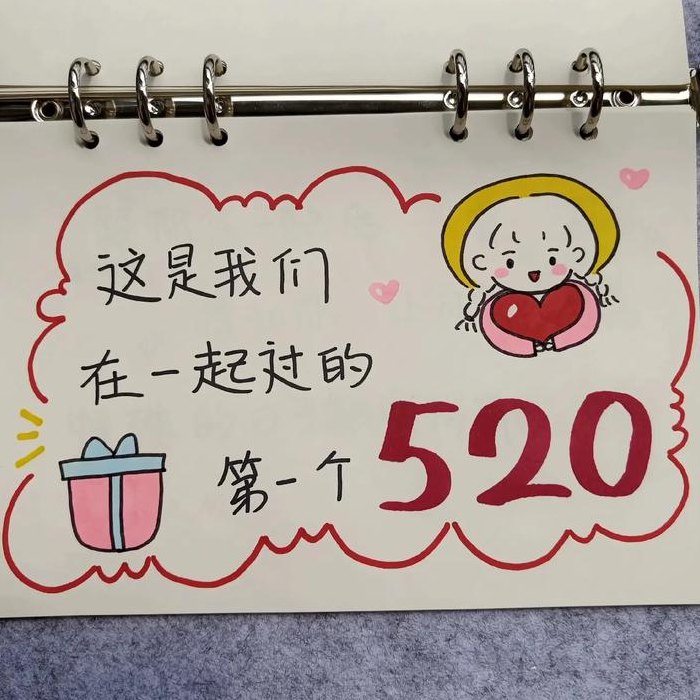 这是我们
在一起过的
第一个520